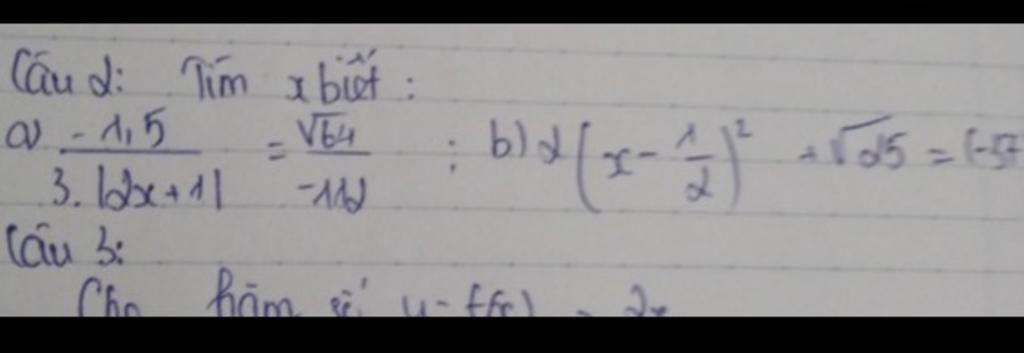 Câu 2: Tìm x biết:
a) -1,5 / 3.|2x+1| = √64 / -112 ; b) 2(x - 1/2)² √25 =
Câu 3:
Cho hàm số